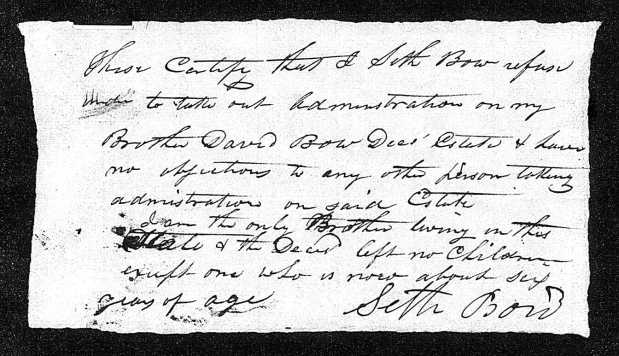 These Certify that I Seth Bow refuse
to take out Adminstration on my
Brother David Bow Decs' Estate & have
no objections to any other person taking
admistration on said Estate
I am the only Brother living in this
State & the Decsd left no Children
except one who is now about six
years of age Seth Bow